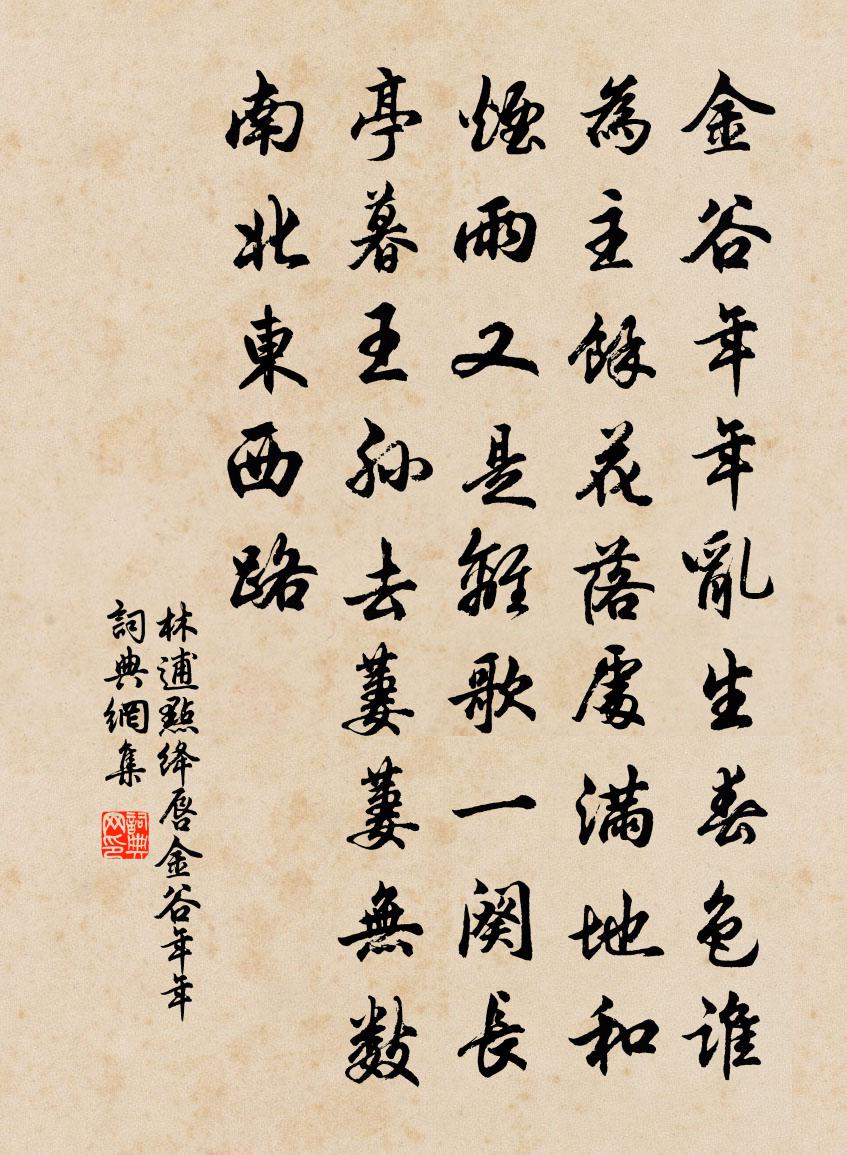 金谷年年亂生春色誰
為主餘花落處滿地和
煙雨又是離歌一闋長
亭暮王孫去萋萋無數
南北東西路
林逋點絳唇金谷年年
詞典網集
詞典网印